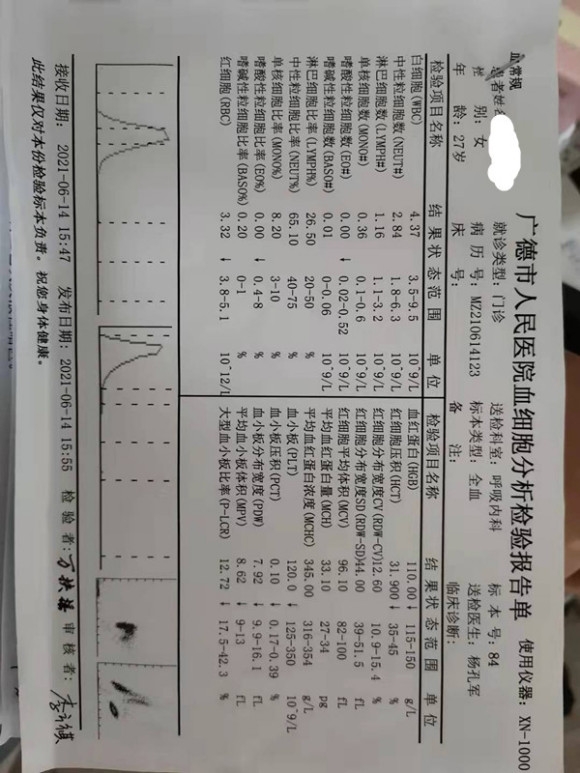 广德市人民医院血细胞分析检验报告单 使用仪器: XN-1000
血常规
患者姓名
就诊类型: 门诊 送检科室: 呼吸内科 标 本 号: 84
性 别: 女 病 历 号: MZ210614123 标本类型: 全血 送检医生: 杨孔军
年 龄: 27岁 床 号: 备 注: 临床诊断:
检验项目名称 结 果 状 态 范 围 单 位 检验项目名称 结 果 状 态 范 围 单 位
白细胞(WBC) 4.37 3.5-9.5 10^9/L 血红蛋白(HGB) 110.00 ↓ 115-150 g/L
中性粒细胞数(NEUT#) 2.84 1.8-6.3 10^9/L 红细胞压积(HCT) 31.900 ↓ 35-45 %
淋巴细胞数(LYMPH#) 1.16 1.1-3.2 10^9/L 红细胞分布宽度CV(RDW-CV) 12.60 10.9-15.4 %
单核细胞数(MONO#) 0.36 0.1-0.6 10^9/L 红细胞分布宽度SD(RDW-SD) 44.00 39-51.5 fL
嗜酸性粒细胞数(EO#) 0.00 ↓ 0.02-0.52 10^9/L 红细胞平均体积(MCV) 96.10 82-100 fL
嗜碱性粒细胞数(BASO#) 0.01 0-0.06 10^9/L 平均血红蛋白量(MCH) 33.10 27-34 pg
淋巴细胞比率(LYMPH%) 26.50 20-50 % 平均血红蛋白浓度(MCHC) 345.00 316-354 g/L
中性粒细胞比率(NEUT%) 65.10 40-75 % 血小板(PLT) 120.0 ↓ 125-350 10^9/L
单核细胞比率(MONO%) 8.20 3-10 % 血小板压积(PCT) 0.10 ↓ 0.17-0.39 %
嗜酸性粒细胞比率(EO%) 0.00 ↓ 0.4-8 % 血小板分布宽度(PDW) 7.92 ↓ 9.9-16.1 fL
嗜碱性粒细胞比率(BASO%) 0.20 0-1 % 平均血小板体积(MPV) 8.62 ↓ 9-13 fL
红细胞(RBC) 3.32 ↓ 3.8-5.1 10^12/L 大型血小板比率(P-LCR) 12.72 ↓ 17.5-42.3 %
接收日期: 2021-06-14 15:47 发布日期: 2021-06-14 15:55 检 验 者: 审 核 者:
此结果仅对本份检验标本负责。祝您身体健康。